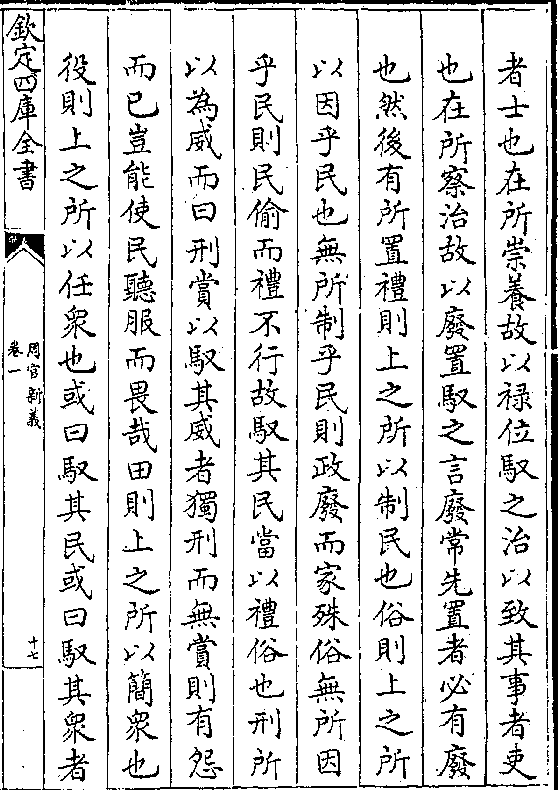 者士也在所崇養故以禄位馭之治以致其事者吏
也在所察治故以廢置馭之言廢常先置者必有廢
也然後有所置禮則上之所以制民也俗則上之所
以因乎民也無所制乎民則政廢而家殊俗無所因
乎民則民偷而禮不行故馭其民當以禮俗也刑所
以為威而曰刑賞以馭其威者獨刑而無賞則有怨
而已豈能使民聽服而畏哉田則上之所以簡衆也
役則上之所以任衆也或曰馭其民或曰馭其衆者
欽定四庫全書
周官新義
卷一
十七